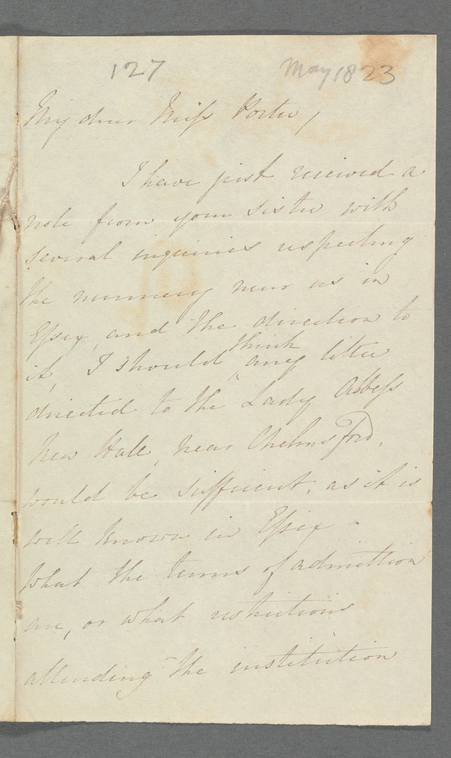 127 May 1823
My dear Miss Porter,
I have just received a
note from your sister with
several inquiries respecting
the nunnery near us in
Essex, and the direction to
it, I should think any letter
directed to the Lady Abbess
New Hall, near Chelmsford,
would be sufficient, as it is
well known in Essex -
What the terms of admittion
are, or what restrictions
attending the institution